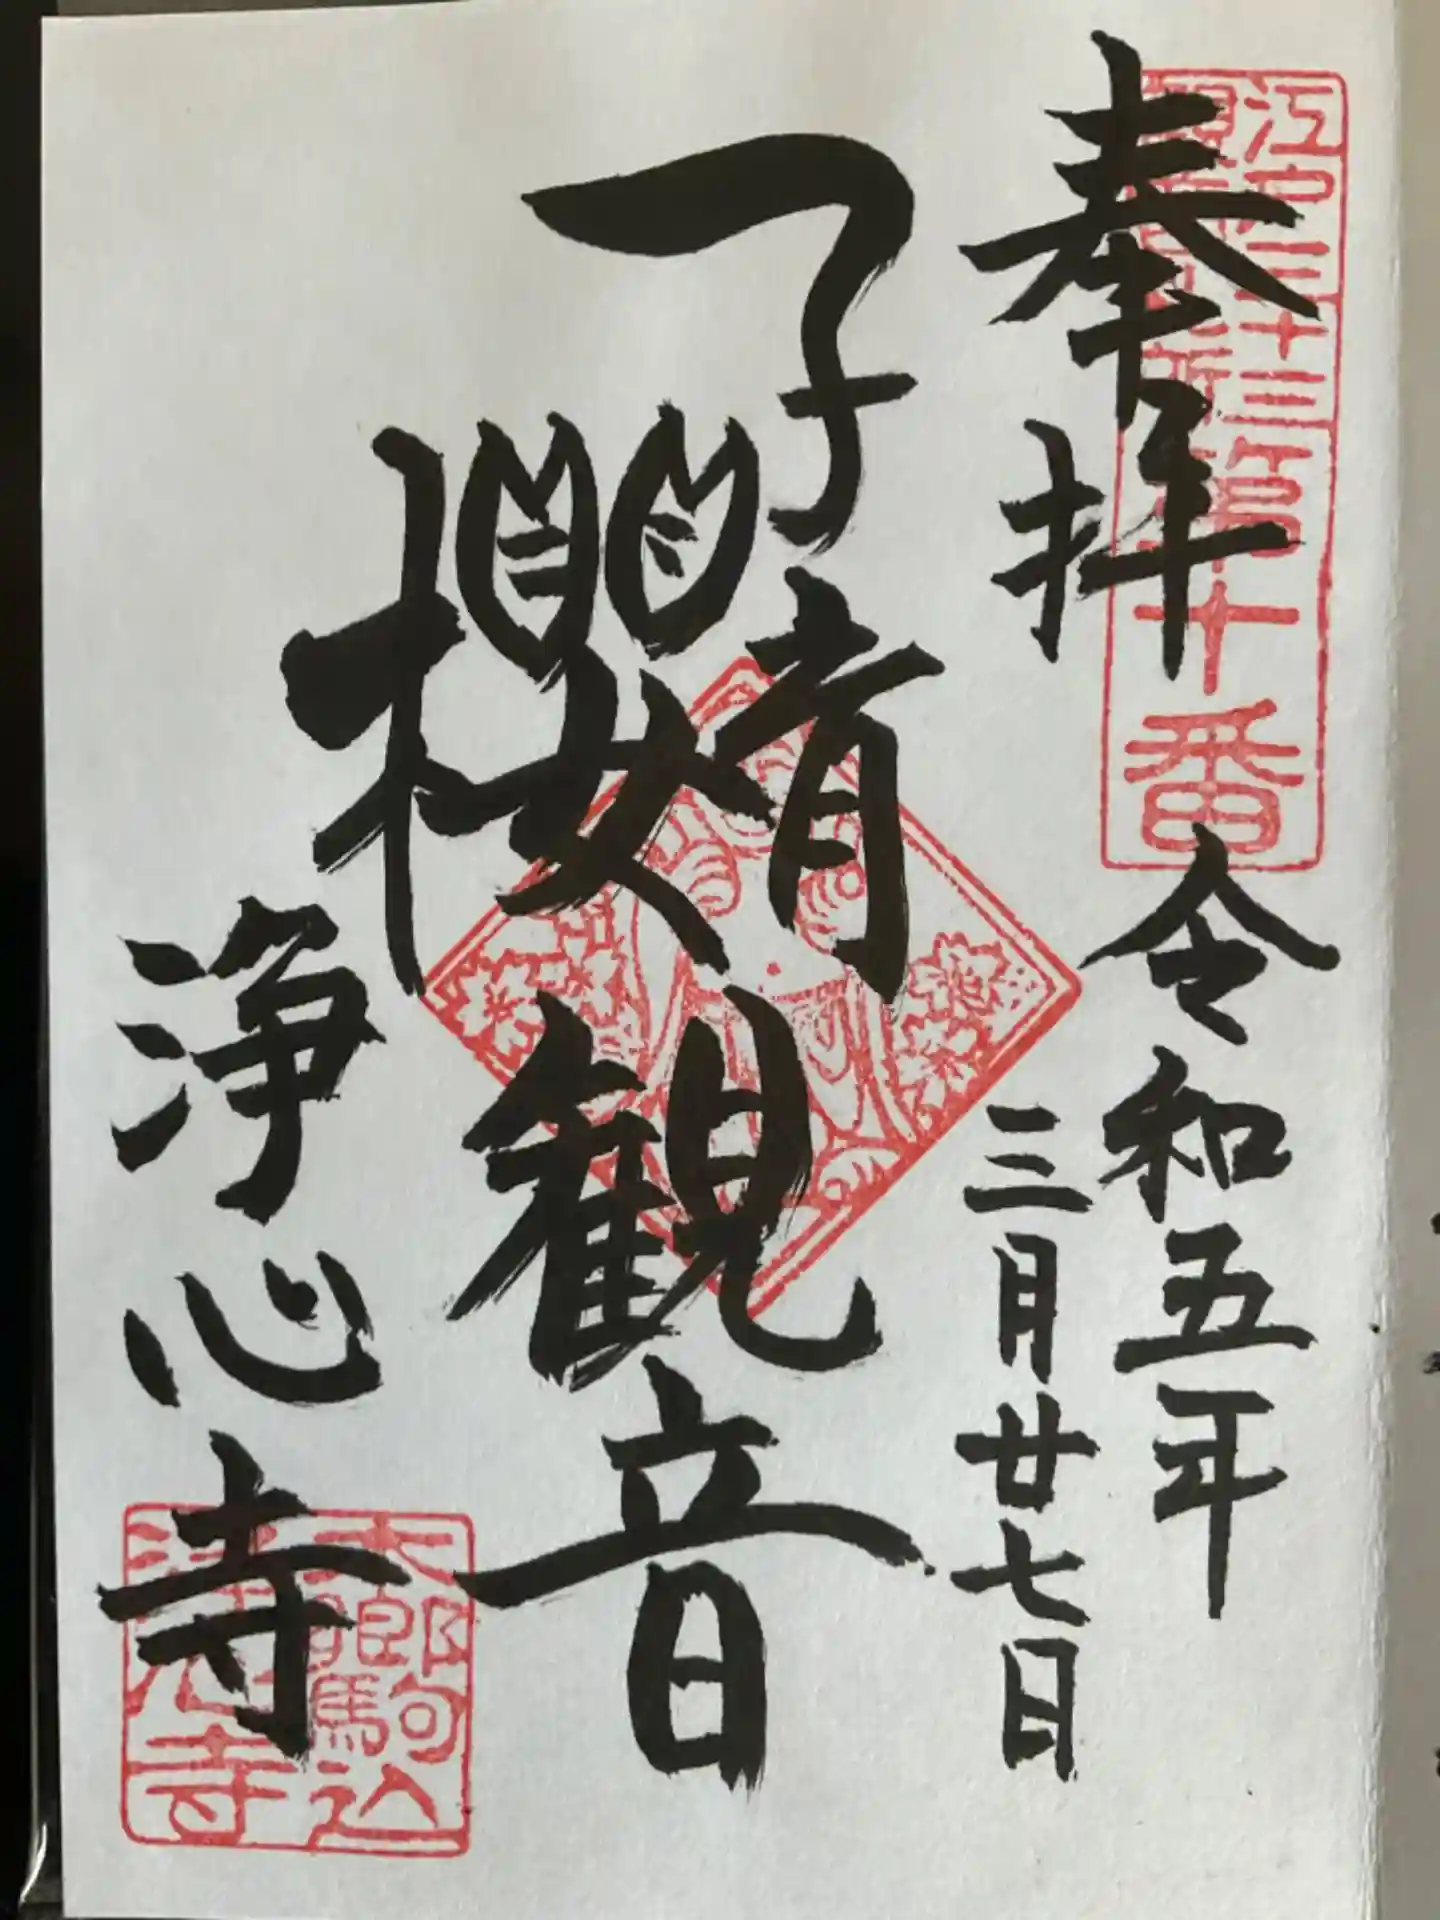 奉拝
江戸三十三
観音札所
第十番
令和五年
三月廿七日
子育
櫻観音
浄心寺
駒込
浄心寺